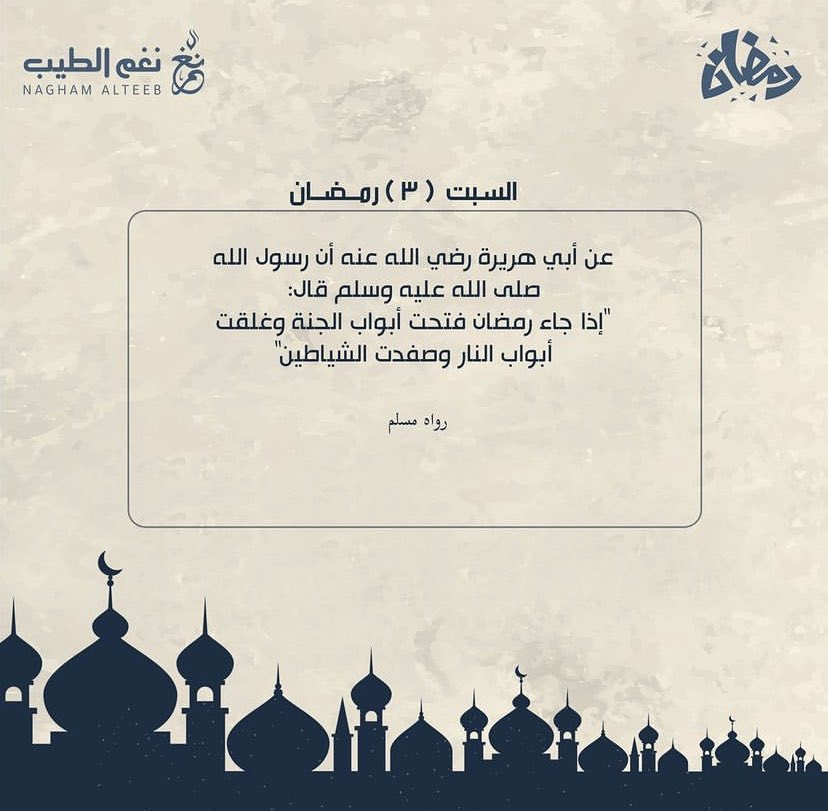 نغم الطيب
NAGHAM ALTEEB
رمضان
السبت (٣) رمـضـان
عن أبي هريرة رضي الله عنه أن رسول الله
صلى الله عليه وسلم قال:
"إذا جاء رمضان فتحت أبواب الجنة وغلقت
أبواب النار وصفدت الشياطين"
رواه مسلم